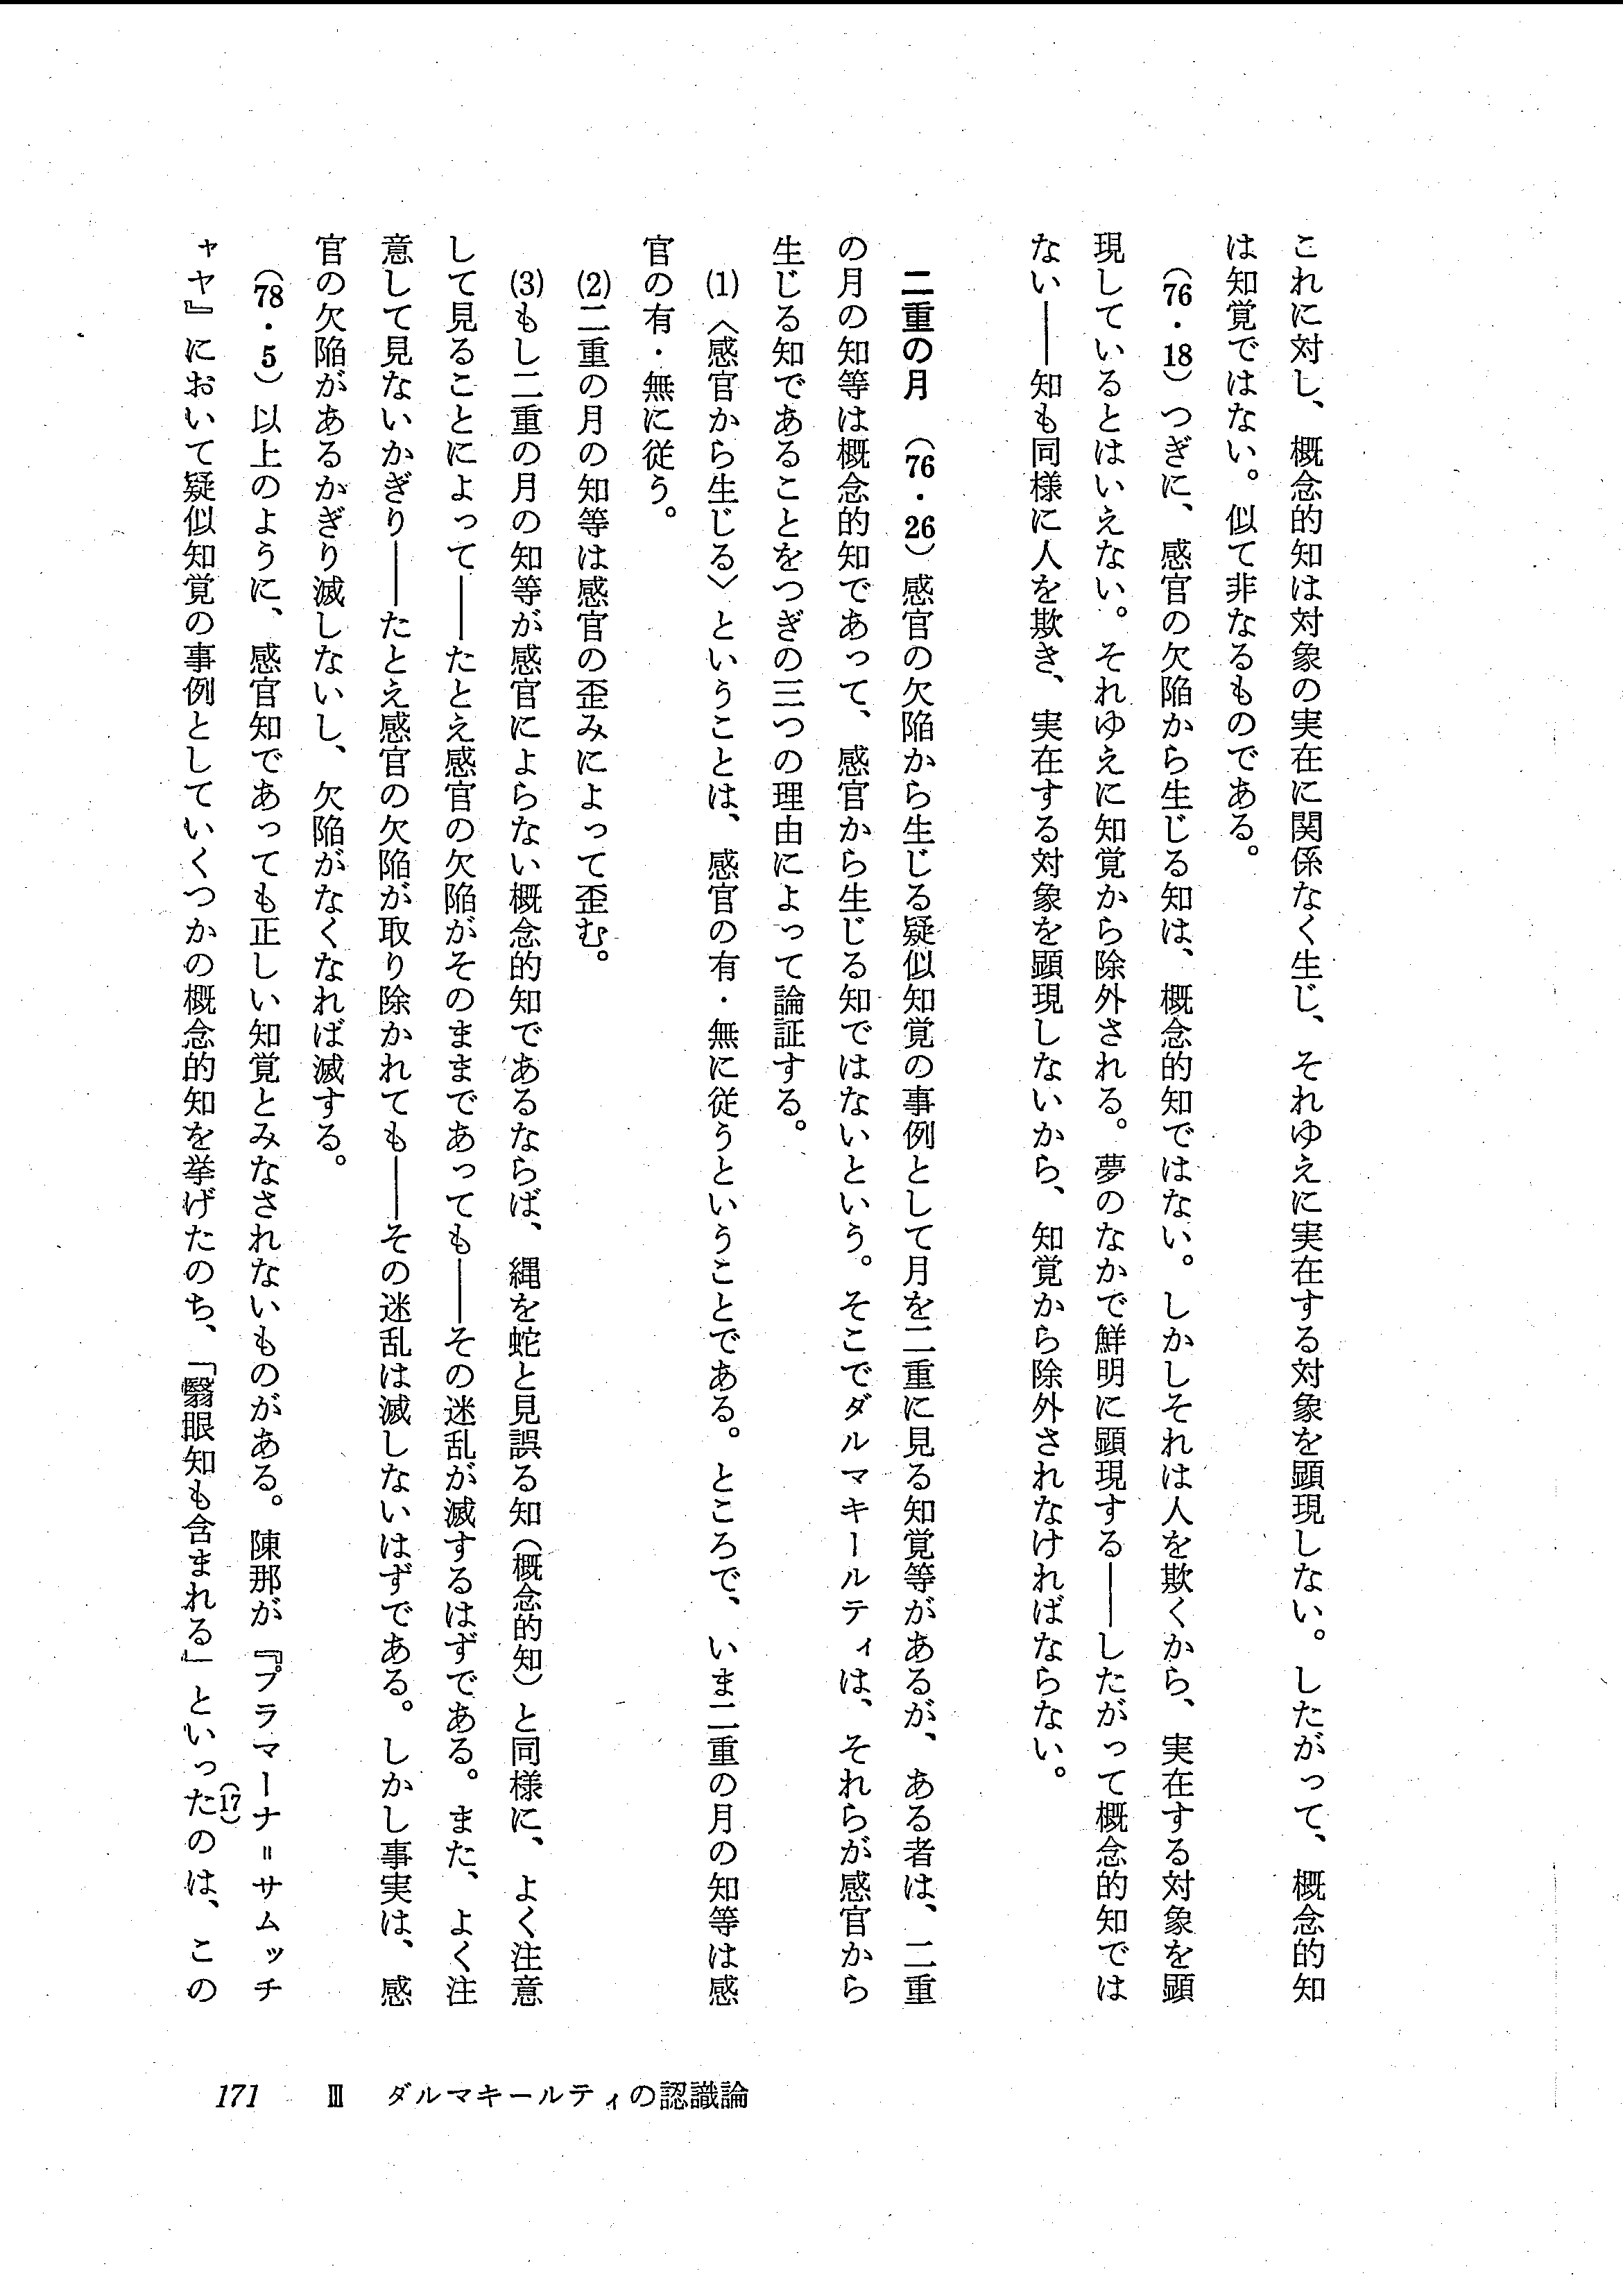 これに対し、概念的知は対象の実在に関係なく生じ、それゆえに実在する対象を顕現しない。したがって、概念的知
は知覚ではない。似て非なるものである。
（76・18）つぎに、感官の欠陥から生じる知は、概念的知ではない。しかしそれは人を欺くから、実在する対象を顕
現しているとはいえない。それゆえに知覚から除外される。夢のなかで鮮明に顕現する――したがって概念的知では
ない――知も同様に人を欺き、実在する対象を顕現しないから、知覚から除外されなければならない。
二重の月　（76・26）感官の欠陥から生じる疑似知覚の事例として月を二重に見る知覚等があるが、ある者は、二重
の月の知等は概念的知であって、感官から生じる知ではないという。そこでダルマキールティは、それらが感官から
生じる知であることをつぎの三つの理由によって論証する。
(1)〈感官から生じる〉ということは、感官の有・無に従うということである。ところで、いま二重の月の知等は感
官の有・無に従う。
(2)二重の月の知等は感官の歪みによって歪む。
(3)もし二重の月の知等が感官によらない概念的知であるならば、縄を蛇と見誤る知（概念的知）と同様に、よく注意
して見ることによって――たとえ感官の欠陥がそのままであっても――その迷乱が滅するはずである。また、よく注
意して見ないかぎり――たとえ感官の欠陥が取り除かれても――その迷乱は滅しないはずである。しかし事実は、感
官の欠陥があるかぎり滅しないし、欠陥がなくなれば滅する。
（78・5）以上のように、感官知であっても正しい知覚とみなされないものがある。陳那が『プラマーナ＝サムッチ
ャヤ』において疑似知覚の事例としていくつかの概念的知を挙げたのち、「翳眼知も含まれる」といった(17)のは、この
171　Ⅲ　ダルマキールティの認識論